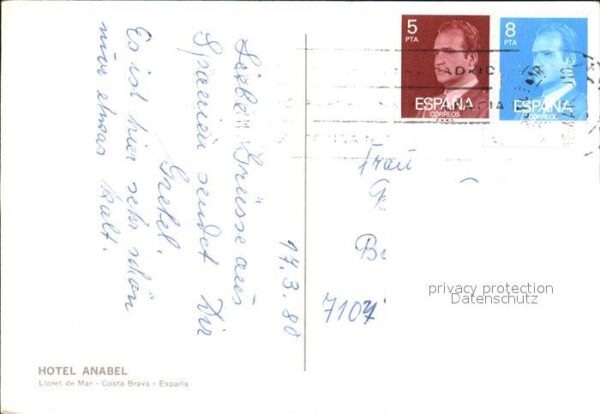 Liebe Grüsse aus
Spanien sendet Dir
Gretel.
Es ist hier sehr schön
nur etwas kalt.
17.3.80
HOTEL ANABEL
Lloret de Mar - Costa Brava - España
5
PTA
ESPAÑA
CORREOS
8
PTA
ESPAÑA
CORREOS
Frau
7107
privacy protection
Datenschutz